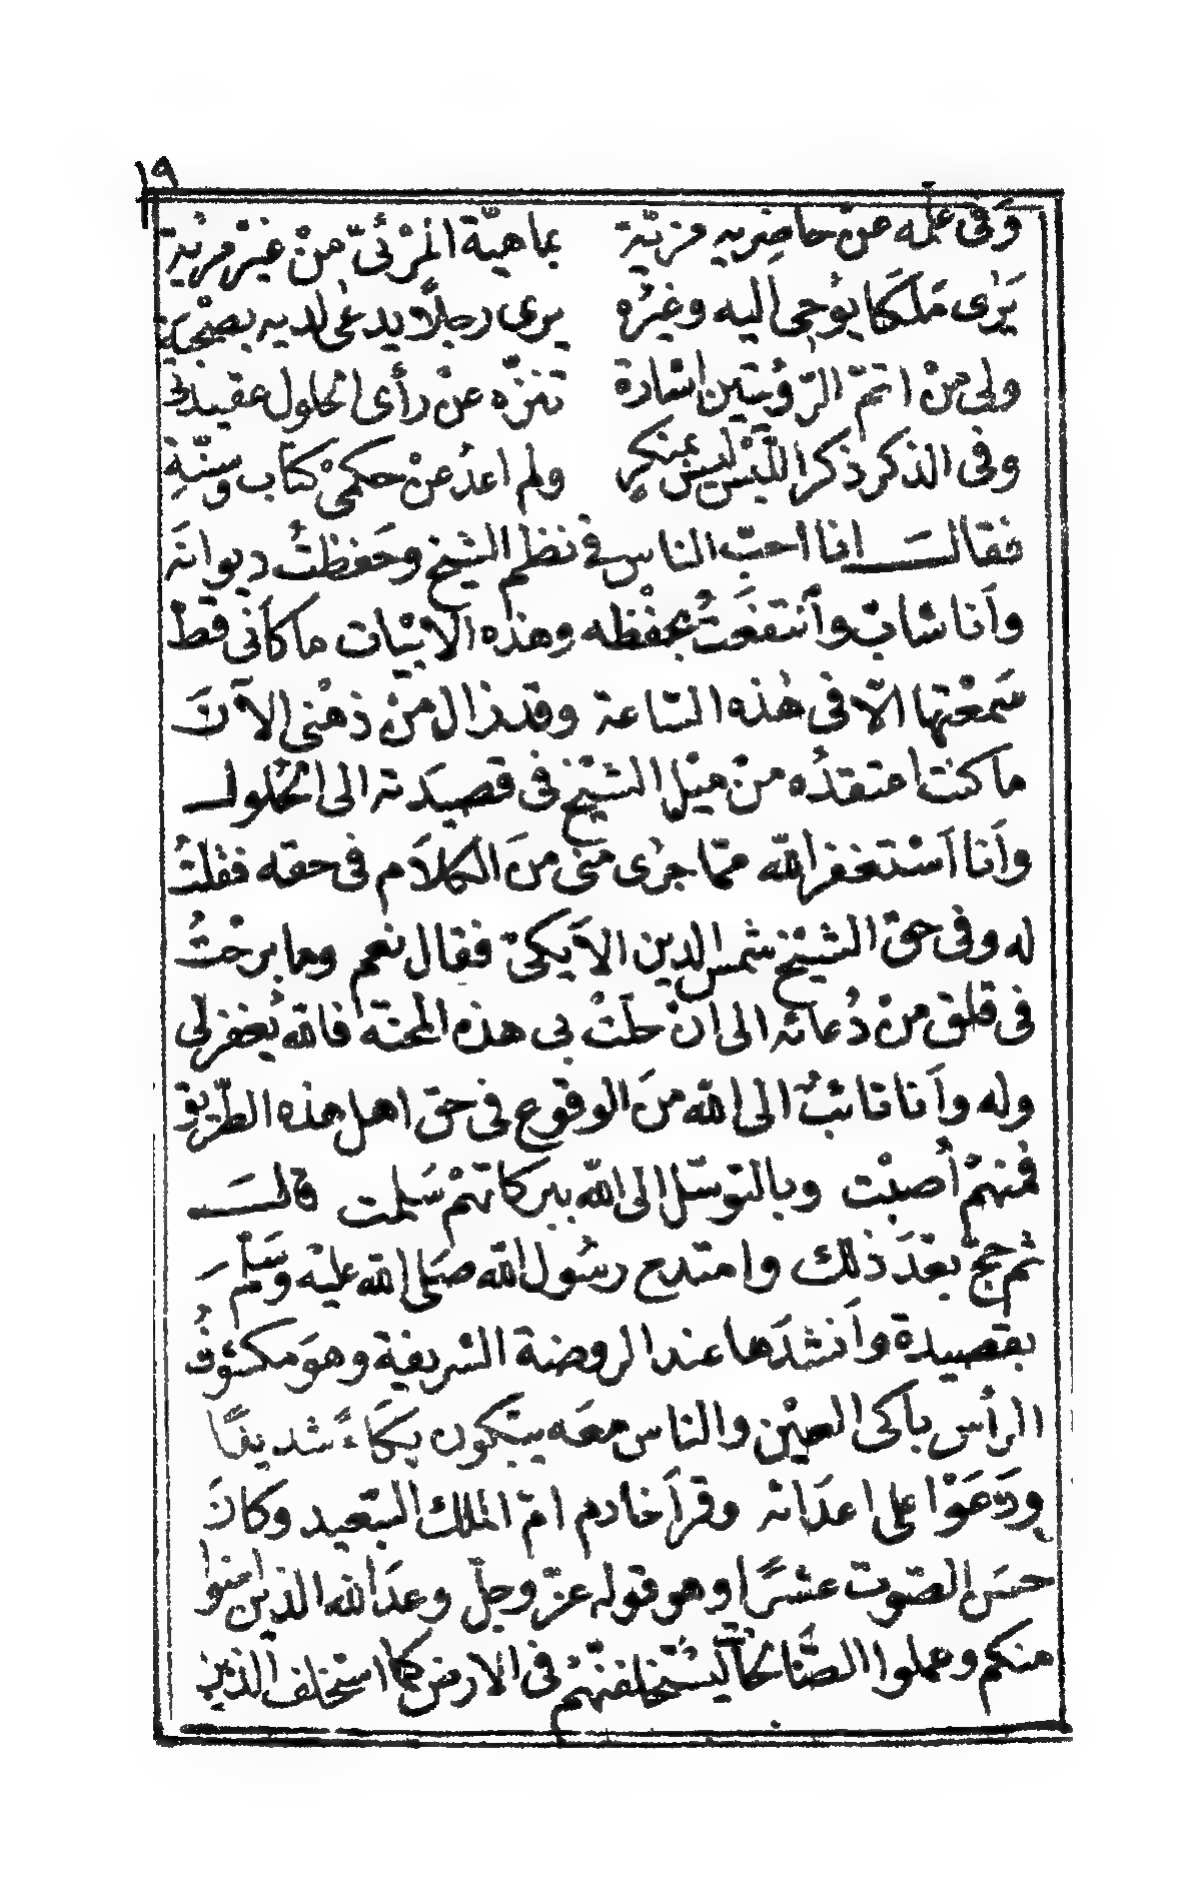 ١٩
وَفى عِلْمِه منْ حاضِريه مزيّة بماهيّة المرْئىّ منْ غيْر مرْيةِ
يَرٰى مَلَكا يوُحى اليه وغيْرُه يرى رجلًا يدعٰى لديه بصُحْبَة
ولى منْ اتمّ الرّؤيتين اشارة تنزّه عنْ رأى الحلول عقيدتى
وفى الذكر ذكر اللّبْس ليس بمنكر ولم اعدُ عنْ حكمىْ كتاب وسنّةِ
فقالـَـــ انا احبّ الناس فى نظم الشيخ وحَفظتُ ديوانَه
وأَنا شابّ وأنتفعتُ بحفْظه وهذه الابيات ما كأنى قط
سَمعْتها الّا فى هٰذه السّاعة وقد زال منْ ذهْنى الآنَ
ما كنت اعتقدُه منْ ميْل الشيْخ فى قصيدَته الى الحُلولـــ
وأَنا أَسْتغفر اللّه ممّا جرٰى منّى منَ الكلَام فى حقه فقلتُ
له وفى حقّ الشيْخ شمس الدين الاَيكىّ فقال نعم وما برحْتُ
فى قلق منْ دُعائه الى انْ حلّتْ بى هذه المحنة فالله يُغفر لى
وله وأَنا تائبُ الى اللّه منَ الوقوع فى حق اهل هذه الطّريق
فمنهمْ أُصبْت وبالتوسّل الى اللّه ببركاتهمْ سَلمت قالـَــــ
ثم حجّ بعْدَ ذلك وامتدح رسُول اللّه صَلى اللّه عليْه وسَلمَ
بقصيدة وأَنشدَها عند الروضة الشريفة وهوَ مكشوُفُ
الرأس باكى العيْن والناس معَه يتبكون بكَاءً شديدًا
ودَعَوْا على اعدَائه وقرأَ خادم امّ الملك السّعيد وكانَ
حسَن الصّوت عشرًا وهو قوله عزّ وجلّ وعدَ اللّه الذين امنوا
منكم وعملوا الصَّالحات ليسْتخلفنّهمْ فى الارض كما استخلف الذين